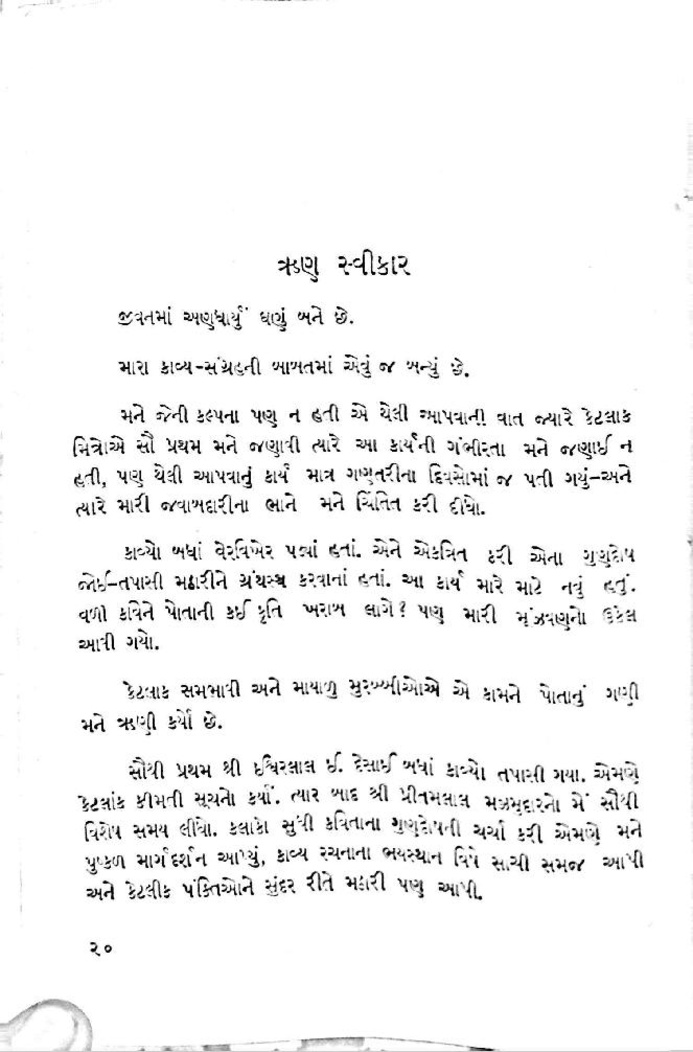 ઋણ સ્વીકાર
જીવનમાં અણધાર્યું ઘણું બને છે.
મારા કાવ્ય-સંગ્રહની બાબતમાં એવું જ બન્યું છે.
મને જેની કલ્પના પણ ન હતી એ થેલી આપવાની વાત જ્યારે કેટલાક
મિત્રોએ સૌ પ્રથમ મને જણાવી ત્યારે આ કાર્યની ગંભીરતા મને જણાઈ ન
હતી, પણ થેલી આપવાનું કાર્ય માત્ર ગણતરીના દિવસોમાં જ પતી ગયું–અને
ત્યારે મારી જવાબદારીના ભાને મને ચિંતિત કરી દીધો.
કાવ્યો બધાં વેરવિખેર પડ્યાં હતાં. એને એકત્રિત કરી એના ગુણદોષ
જોઈ–તપાસી મઠારીને ગ્રંથસ્થ કરવાનાં હતાં. આ કાર્ય મારે માટે નવું હતું.
વળી કવિને પોતાની કઈ કૃતિ ખરાબ લાગે? પણ મારી મૂંઝવણનો ઉકેલ
આવી ગયો.
કેટલાક સમભાવી અને માયાળુ મુરબ્બીઓએ એ કામને પોતાનું ગણી
મને ઋણી કર્યો છે.
સૌથી પ્રથમ શ્રી ઈશ્વરલાલ ઈ. દેસાઈ બધાં કાવ્યો તપાસી ગયા. એમણે
કેટલાંક કીમતી સૂચનો કર્યાં. ત્યાર બાદ શ્રી પ્રીતમલાલ મઝમુદારનો મેં સૌથી
વિશેષ સમય લીધો. કલાકો સુધી કવિતાના ગુણદોષની ચર્ચા કરી એમણે મને
પુષ્કળ માર્ગદર્શન આપ્યું, કાવ્ય રચનાના ભયસ્થાન વિષે સાચી સમજ આપી
અને કેટલીક પંક્તિઓને સુંદર રીતે મઠારી પણ આપી.
૨૦